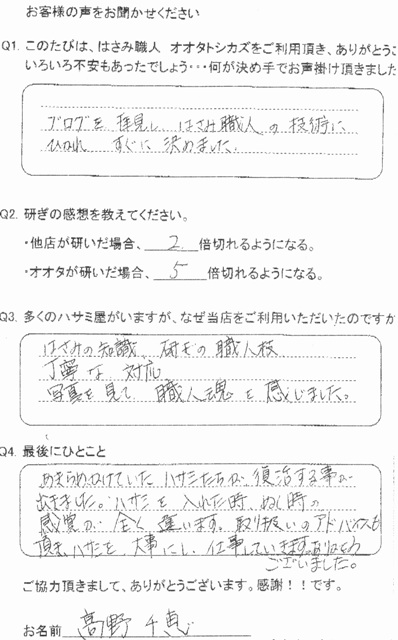 お客様の声をお聞かせください
Q1. このたびは、はさみ職人 オオタトシカズをご利用頂き、ありがとうご
いろいろ不安もあったでしょう・・・何が決め手でお声掛け頂きました
ブログを拝見し はさみ職人の技術に
ひかれ すぐに決めました。
Q2. 研ぎの感想を教えてください。
・他店が研いだ場合、 2 倍切れるようになる。
・オオタが研いだ場合、 5 倍切れるようになる。
Q3. 多くのハサミ屋がいますが、なぜ当店をご利用いただいたのですか
はさみの知識、研ぎの職人技
丁寧な対応
写真を見て 職人魂を感じました。
Q4. 最後にひとこと
あきらめかけていたハサミたちが、復活する事が
出きました。ハサミを入れた時、ぬく時の
感覚が 全く違います。取り扱いのアドバイスも
頂き、ハサミを大事にし、仕事していきます。ありがとう
ございました。
ご協力頂きまして、ありがとうございます。感謝！！です。
お名前 高野 千恵